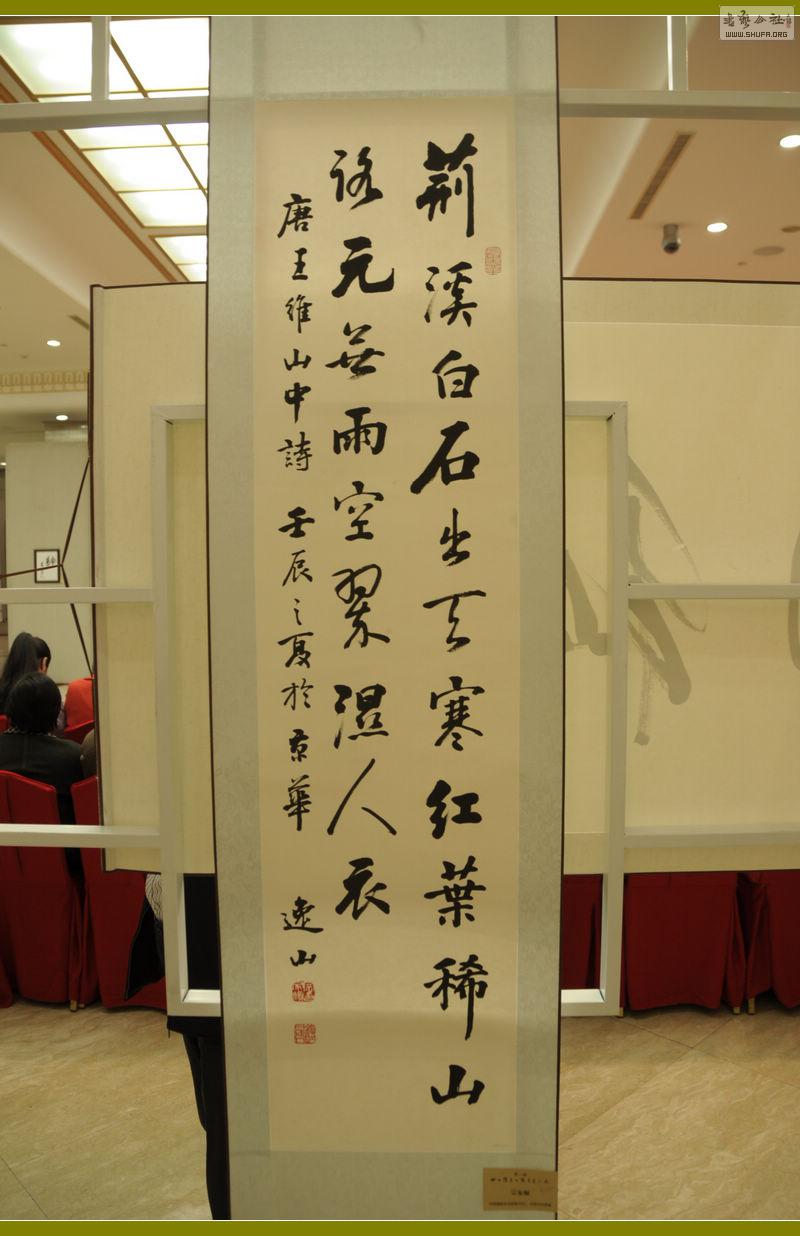 荆溪白石出天寒红葉稀山
路元無雨空翠濕人衣
唐王維山中詩 壬辰之夏於京華 逸山
書藝公社
WWW.SHUFA.ORG